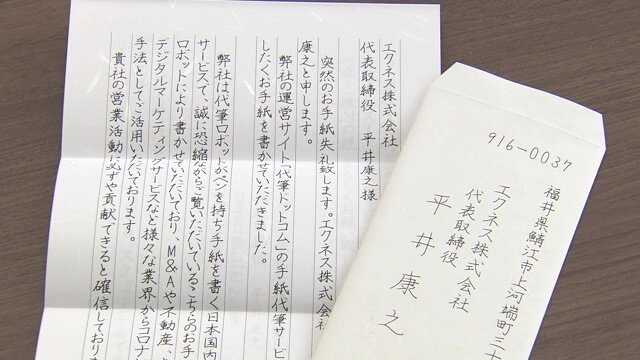 エクネス株式会社
代表取締役 平井康之様
突然のお手紙失礼致します。エクネス株式会
康之と申します。
弊社の運営サイト「代筆ドットコム」の手紙代筆サービ
したくお手紙を書かせていただきました。
弊社は代筆ロボットがペンを持ち手紙を書く日本国内
サービスで、誠に恐縮ながらご覧いただいているこちらのお手
ロボットにより書かせていただいており、M&Aや不動産、
デジタルマーケティングサービスなど様々な業界からコロナ
手法としてご活用いただいております。
貴社の営業活動に必ずや貢献できると確信しており
916-0037
福井県鯖江市上河端町三十
エクネス株式会社
代表取締役
平井康之